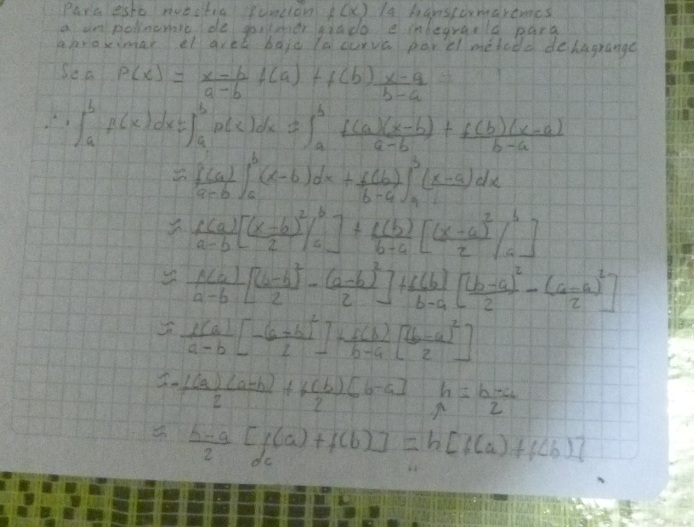 Para esto nuestra función f(x) la transformaremos
a un polinomio de primer grado e integrarla para
aproximar el area bajo la curva por el método de Lagrange
Sea P(x) = \frac{x-b}{a-b} f(a) + f(b) \frac{x-a}{b-a}
∴ ∫_a^b f(x)dx ≈ ∫_a^b p(x)dx = ∫_a^b \frac{f(a)(x-b)}{a-b} + \frac{f(b)(x-a)}{b-a}
≈ \frac{f(a)}{a-b} ∫_a^b (x-b)dx + \frac{f(b)}{b-a} ∫_a^b (x-a)dx
≈ \frac{f(a)}{a-b} [\frac{(x-b)^2}{2} /_a^b] + \frac{f(b)}{b-a} [\frac{(x-a)^2}{2} /_a^b]
≈ \frac{f(a)}{a-b} [\frac{(b-b)^2}{2} - \frac{(a-b)^2}{2}] + \frac{f(b)}{b-a} [\frac{(b-a)^2}{2} - \frac{(a-a)^2}{2}]
≈ \frac{f(a)}{a-b} [-\frac{(a-b)^2}{2}] + \frac{f(b)}{b-a} [\frac{(b-a)^2}{2}]
≈ -\frac{f(a)(a-b)}{2} + \frac{f(b)}{2} [b-a] h = \frac{b-a}{2}
≈ \frac{b-a}{2} [f(a) + f(b)] = h[f(a) + f(b)]